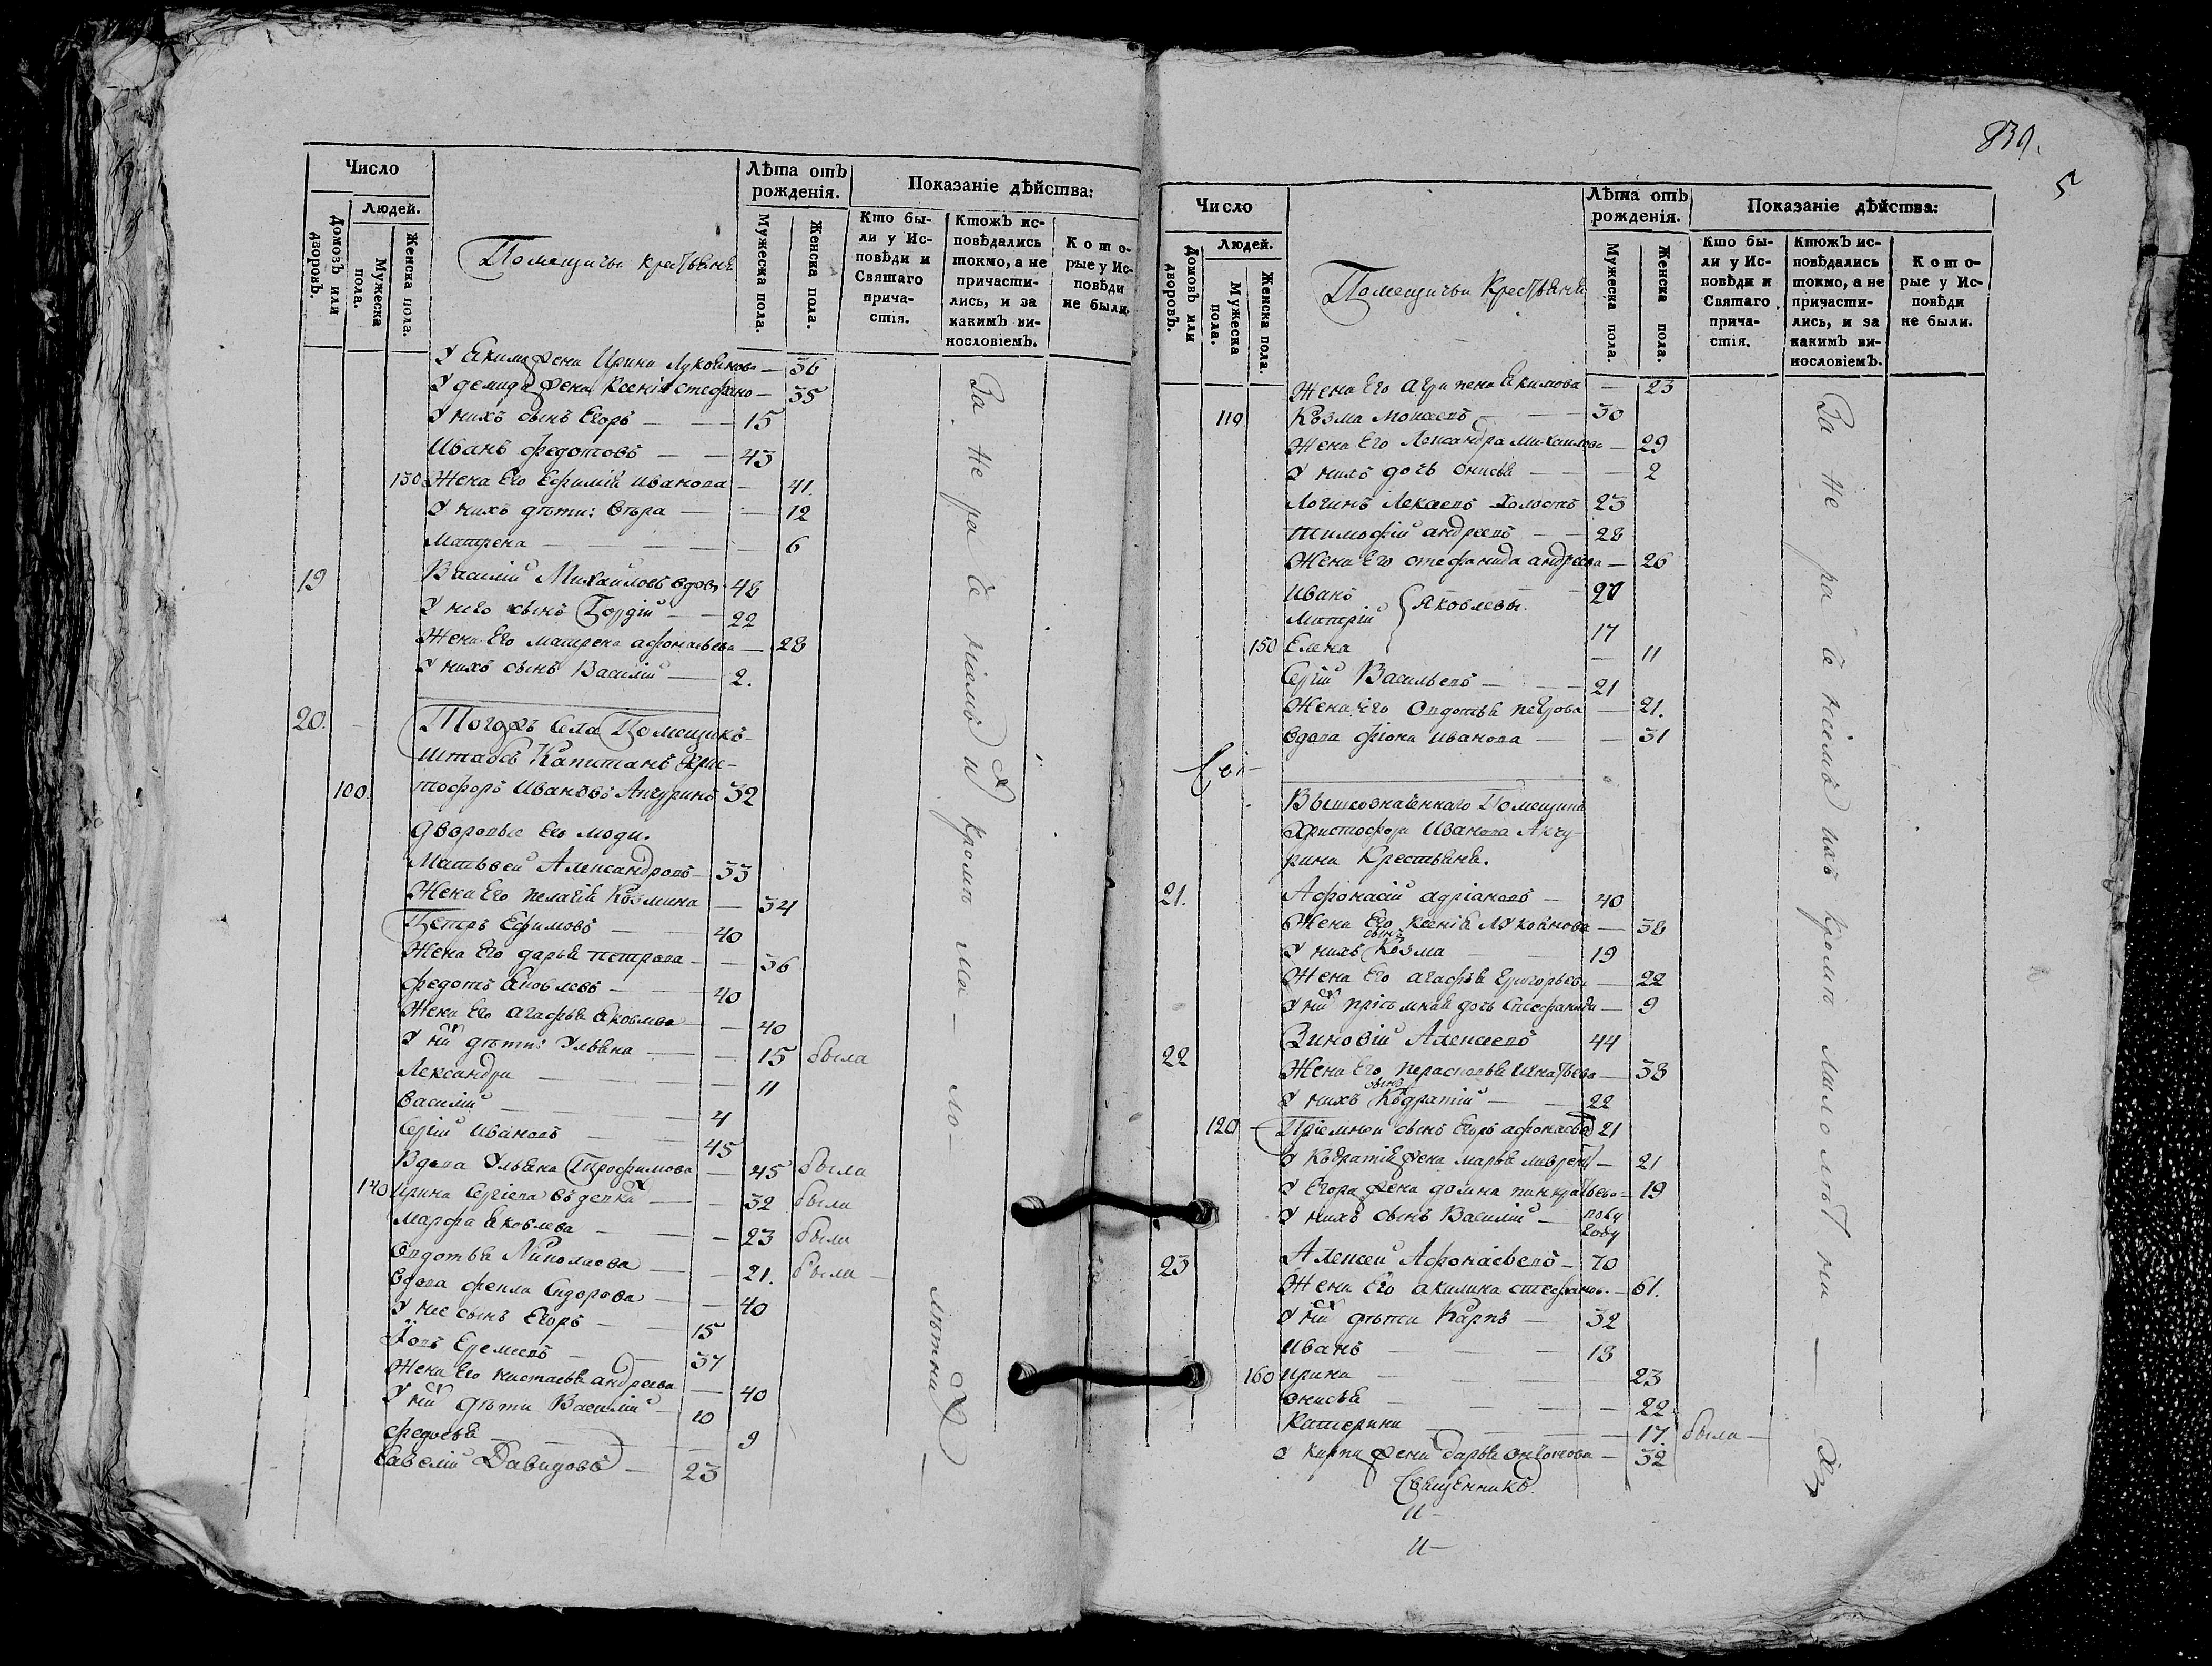 Число
Людей.
Домовъ или дворовъ.
Мужеска пола.
Женска пола.
Помещичьи крестьяне
Лѣта отъ рожденія.
Мужеска пола.
Женска пола.
Показаніе дѣйства:
Кто бы-
ли у Ис-
повѣди и
Святаго
прича-
стія.
Ктожъ ис-
повѣдались
токмо, а не
причасти-
лись, и за
какимъ ви-
нословіемъ.
Кото-
рые у Ис-
повѣди
не были.
У Екима жена Ирина Лукоянова — 36
У демида жена Ксенія стефано — 35
У нихъ сынъ Егоръ — 15
Иванъ федотовъ — 43
130 Жена Его Ефимія иванова — 41.
У нихъ дѣти: — 12
Матрена — 6
19 Василій Михаиловъ вдовъ 48
У него сынъ Гордій — 22
Жена Его матрена афонасьева — 28
У нихъ сынъ Василій — 2.
20. Тогожъ Села Помещикъ
штабсъ Капитанъ Хрис-
100. тофоръ Ивановъ Анчуринъ 32
дворовые Его люди.
Матьвей Александровъ — 33
Жена Его пелагія Козмина — 34
Петръ Ефимовъ — 40
Жена Его дарья петрова — 36
федотъ Яковлевъ — 40
Жена Его агафья Яковлева — 40
У ни дѣти: Ульяна — 15 была
Лександра — 11
Василій — 4
Сергій Ивановъ — 45
Вдова Ульяна Трофимова — 45 была
140 Ирина Сергіева — 32 была
Марфа Яковлева — 23 была
Овдотья Николаева — 21. была
Вдова фекла Сидорова — 40
У нее сынъ Егоръ — 15
Іовъ Еремеевъ — 37
Жена Его настасья андреева — 40
У ни дѣти Василій — 10
федосья — 9
Савелій Давидовъ — 23
За не ра че ніемъ и кромѣ ма — ло — лѣтни
839.
5
Число
Людей.
Домовъ или дворовъ.
Мужеска пола.
Женска пола.
Помещичьи Крестьяне
Лѣта отъ рожденія.
Мужеска пола.
Женска пола.
Показаніе дѣйства:
Кто бы-
ли у Ис-
повѣди и
Святаго
прича-
стія.
Ктожъ ис-
повѣдались
токмо, а не
причасти-
лись, и за
какимъ ви-
нословіемъ.
Кото-
рые у Ис-
повѣди
не были.
Жена Его агрипена Екимова — 23
110 Козма моисеевъ — 30
Жена Его Лександра Михаилова — 29
У нихъ дочь онисья — 2
Логинъ холостъ 23
тимофій андреевъ — 28
Жена Его стефанида андреева — 26
Иванъ 27
Яковлевы.
17
150 Елена — 11
Сергій Васильевъ — 21
Жена Его Овдотья петрова — 21.
Вдова иванова — 31
Вышеозначеннаго Помещика
Христофора Иванова Анчу-
рина Крестьяне.
21. Афонасій адріановъ — 40
Жена Его Ксенія Лукоянова — 38
У нихъ сынъ Козма — 19
Жена Его агафья Григорьева — 22
У ни пріемная дочь Стефанида — 9
22 Зиновій Алексеевъ 44
Жена Его парасковья игнатьева — 38
У нихъ сынъ Кодратій — 22
120 Пріемной сынъ Егоръ афонасьевъ 21
У Кодратія жена марья лаврент — 21
У Егора жена домна панкратьева — 19
У нихъ сынъ Василій — полу году
23 Алексей Афонасьевъ — 70
Жена Его акилина стефанов. — 61.
У ни дѣти Карпъ — 32
Иванъ — 18
160 Ирина — 23
Онисья — 22
Катерина — 17. была —
У карпа жена дарья онтонова — 32
Священникъ
За не ра че ніемъ ихъ кромѣ мало лѣт ни — хъ